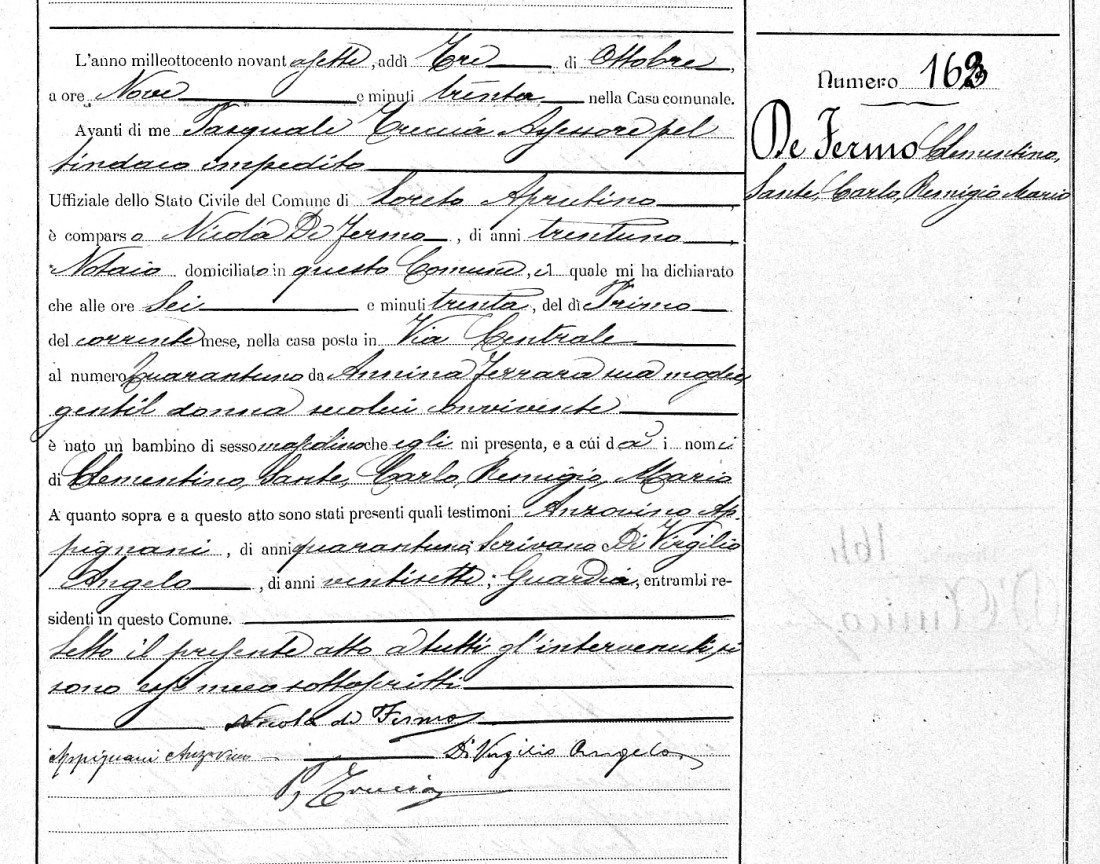 L'anno milleottocento novantasette, addì Tre di Ottobre,
a ore Nove e minuti trenta nella Casa comunale.
Avanti di me Pasquale Treccia Assessore pel
Sindaco impedito
Uffiziale dello Stato Civile del Comune di Loreto Aprutino,
è comparso Nicola De Fermo, di anni trentuno
Notaio domiciliato in questo Comune, il quale mi ha dichiarato
che alle ore Sei e minuti trenta, del dì Primo
del corrente mese, nella casa posta in Via Centrale
al numero Quarantuno da Annina Ferrara sua moglie,
gentil donna secolui convivente
è nato un bambino di sesso mascolino che egli mi presenta, e a cui dà i nomi
di Clementino, Sante, Carlo, Remigio, Mario
A quanto sopra e a questo atto sono stati presenti quali testimoni Anzovino Ap-
pignani, di anni quarantuno, Scrivano Di Virgilio
Angelo, di anni ventisette, Guardia, entrambi re-
sidenti in questo Comune.
Letto il presente atto a tutti gl'intervenuti, si
sono essi meco sottoscritti
Nicola de Fermo
Appignani Anzovino Di Virgilio Angelo
P. Treccia
Numero 163
De Fermo Clementino,
Sante, Carlo, Remigio Mario